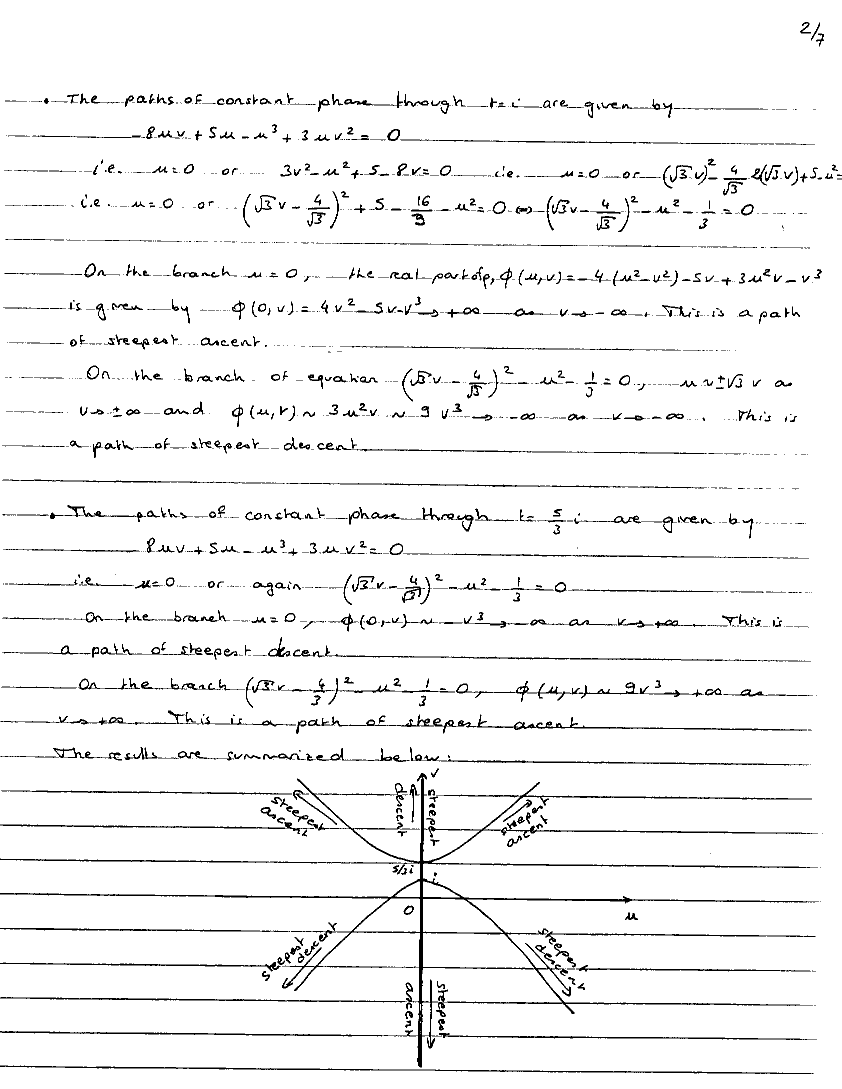 2/7
• The paths of constant phase through t=i are given by
-8uv + 5u - u³ + 3uv² = 0
i.e. u=0 or 3v² - u² + 5 - 8v = 0 i.e. u=0 or (√3 v)² - 4/√3 2(√3 v) + 5 - u² =
i.e. u=0 or (√3 v - 4/√3)² + 5 - 16/3 - u² = 0 ⇔ (√3 v - 4/√3)² - u² - 1/3 = 0
On the branch u=0, the real part of ρ, φ(u,v) = -4(u²-v²) - 5v + 3u²v - v³
is given by φ(0,v) = 4v² - 5v - v³ → +∞ as v → -∞. This is a path
of steepest ascent.
On the branch of equation (√3 v - 4/√3)² - u² - 1/3 = 0, u ~ ±√3 v as
v → ±∞ and φ(u,v) ~ 3u²v ~ 9v³ → -∞ as v → -∞. This is
a path of steepest descent.
• The paths of constant phase through t= 5/3 i are given by
- 8uv + 5u - u³ + 3uv² = 0
i.e. u=0 or again (√3 v - 4/√3)² - u² - 1/3 = 0
On the branch u=0, φ(0,v) ~ -v³ → -∞ as v → +∞. This is
a path of steepest descent.
On the branch (√3 v - 4/3)² - u² - 1/3 = 0, φ(u,v) ~ 9v³ → +∞ as
v → +∞. This is a path of steepest ascent.
The results are summarized below:
v
steepest
ascent
descent
steepest
steepest
ascent
5/3 i
i
0
u
steepest
descent
steepest
descent
ascent
steepest